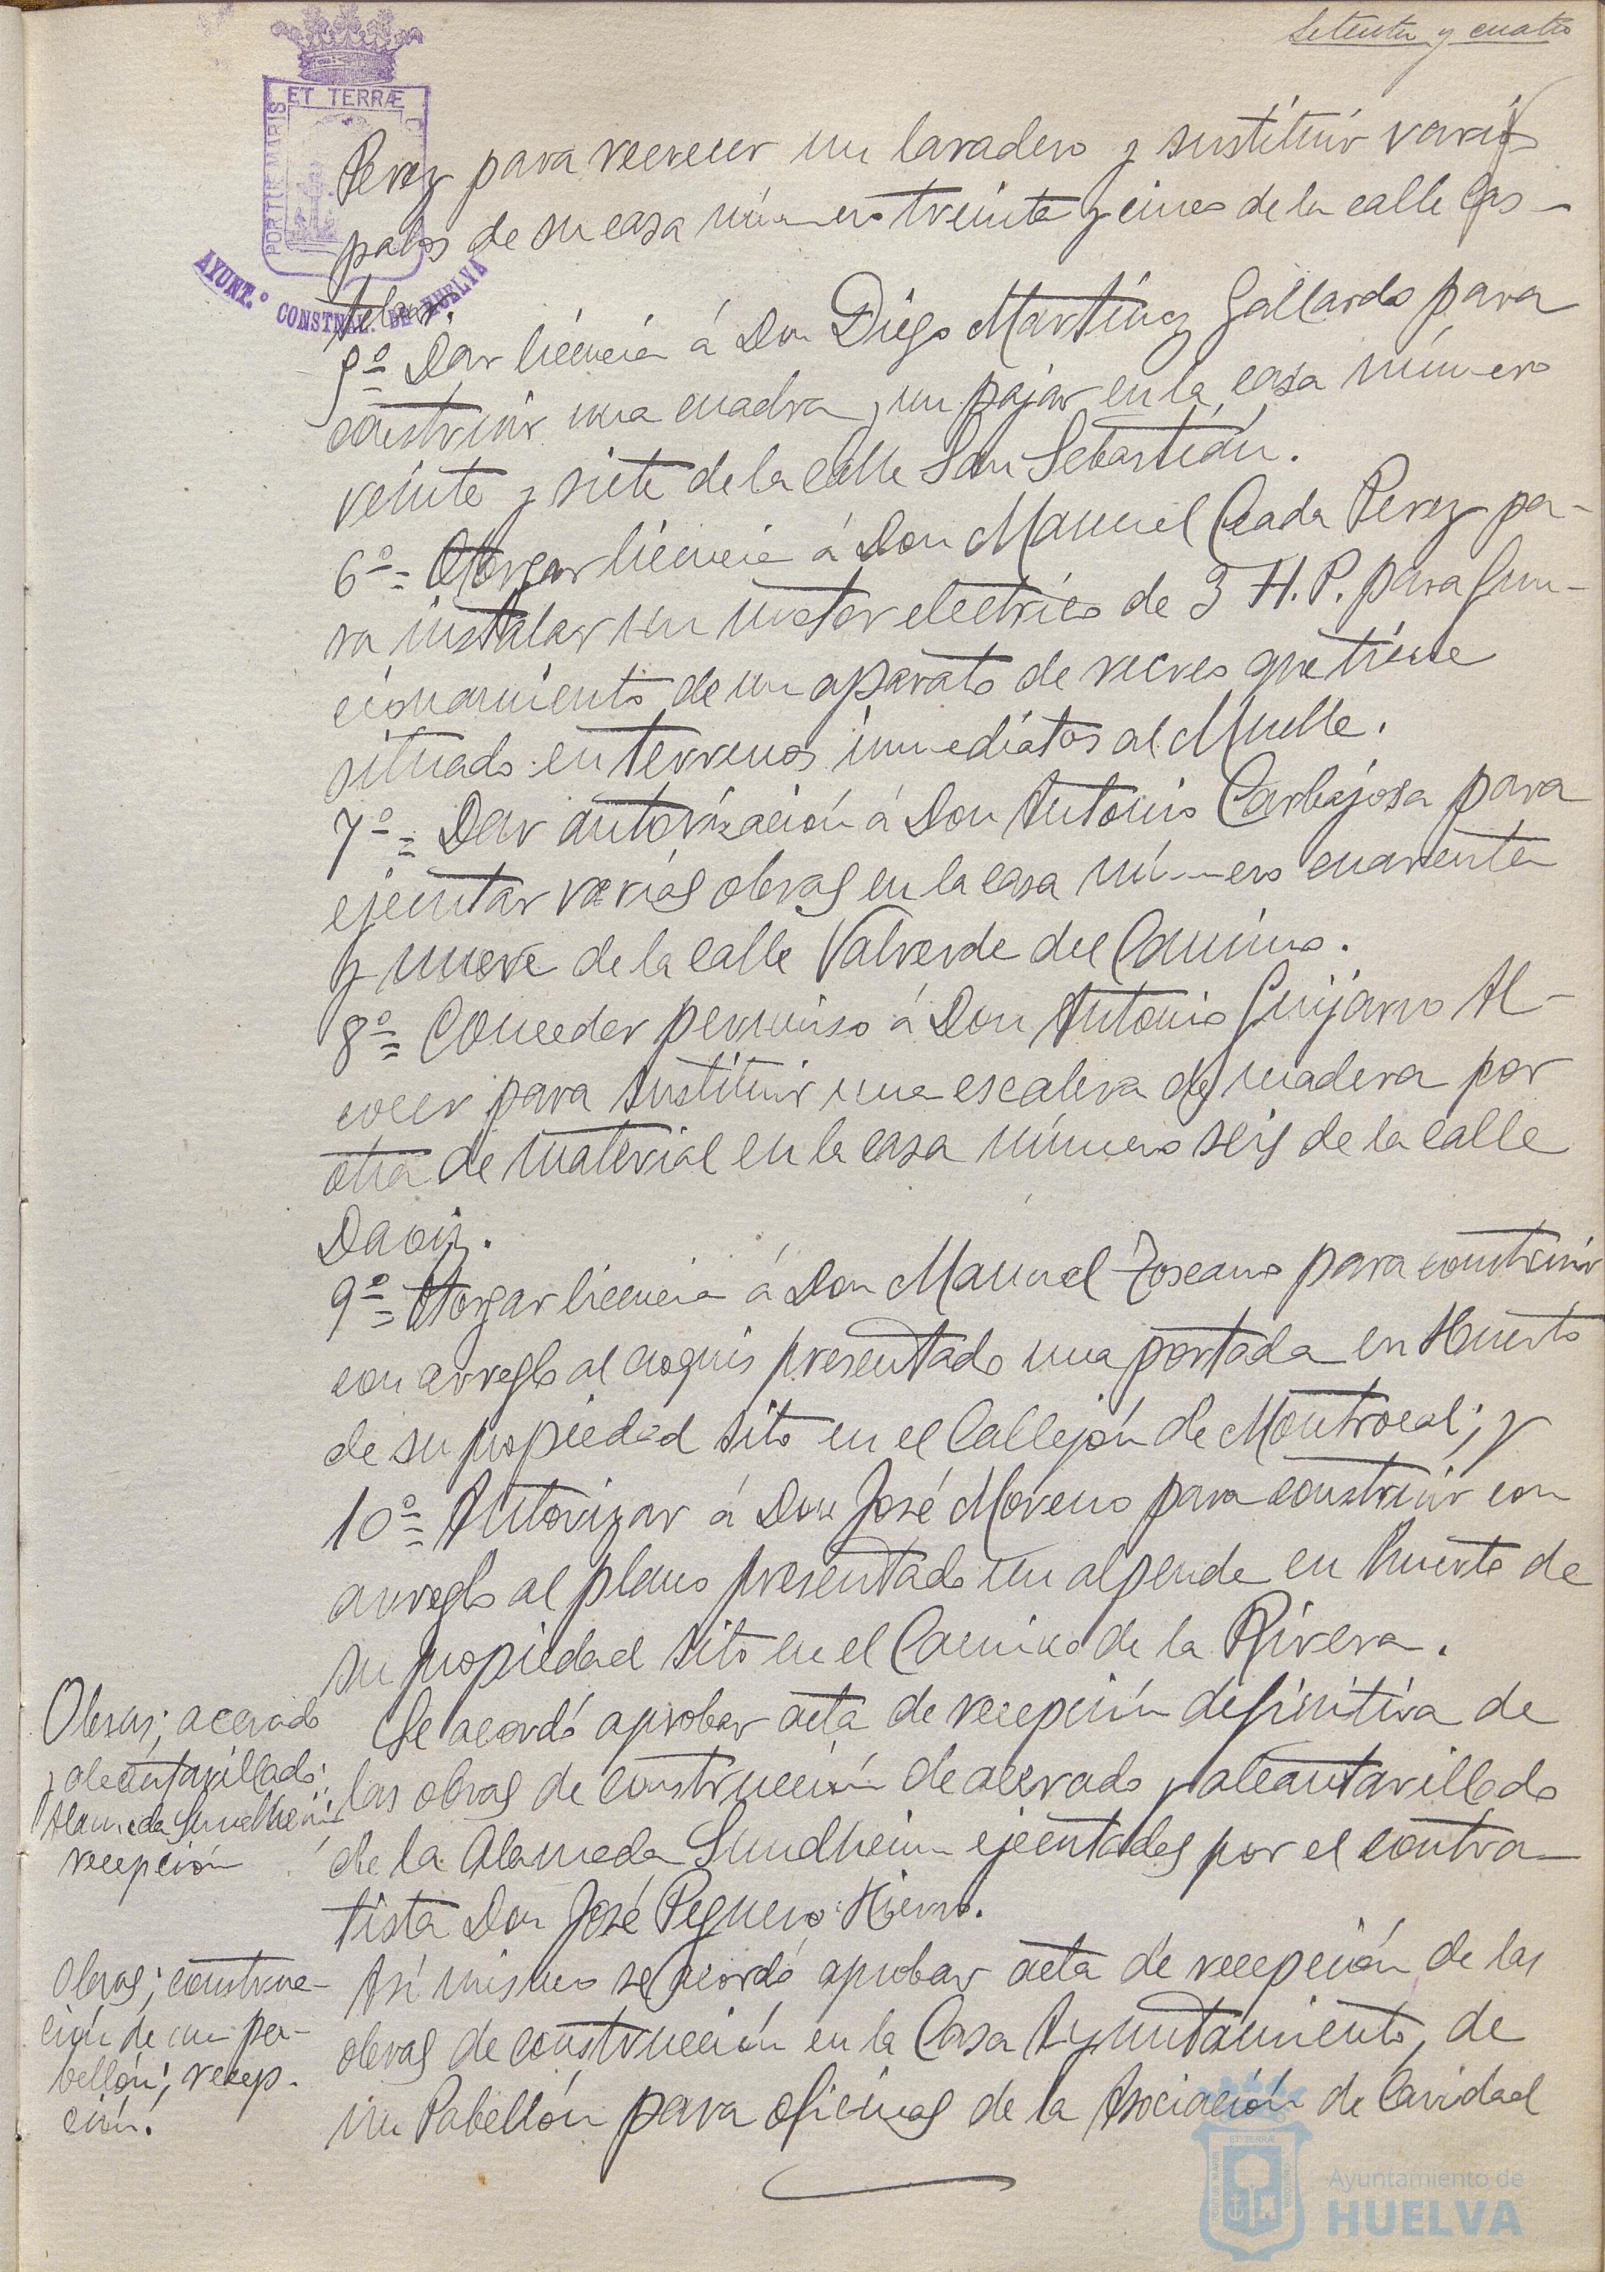 Setenta y cuatro
ET TERRÆ
PORTUS MARIS
AYUNT.º CONSTNAL. DE HUELVA
Perez para recrecer un lavadero y sustituir varios
palos de su casa número treinta y cinco de la calle Cas-
telar.
5º Dar licencia á Don Diego Martínez Gallardo para
construir una cuadra y un pajar en la casa número
veinte y siete de la Calle San Sebastián.
6º = Otorgar licencia á Don Manuel Ceada Perez pa-
ra instalar un motor electrico de 3 H.P. para fun-
cionamiento de un aparato de recreo que tiene
situado en terrenos inmediatos al Muelle.
7º = Dar autorización á Don Antonio Carbajosa para
ejecutar varias obras en la casa número cuarenta
y nueve de la calle Valverde del Camino.
8º = Conceder permiso á Don Antonio Guijarro Al-
cocer para sustituir una escalera de madera por
otra de material en la casa número seis de la calle
Daoiz.
9º = Otorgar licencia á Don Manuel Toscano para construir
con arreglo al croquis presentado una portada en Huerto
de su propiedad sito en el Callejón de Montrocal; y
10º = Autorizar á Don José Moreno para construir con
arreglo al plano presentado un alpende en huerto de
su propiedad sito en el Camino de la Rivera.
Obras; acerado
y alcantarillado;
Alameda Sundheim;
recepción
Se acordó aprobar acta de recepción definitiva de
las obras de construcción de acerado y alcantarillado
de la Alameda Sundheim ejecutadas por el contra-
tista Don José Peguero Hierro.
Obras; construc-
ción de un pa-
bellón; recep-
ción.
Así mismo se acordó aprobar acta de recepción de las
obras de construcción en la Casa Ayuntamiento, de
un Pabellón para oficinas de la Asociación de Caridad
Ayuntamiento de
HUELVA